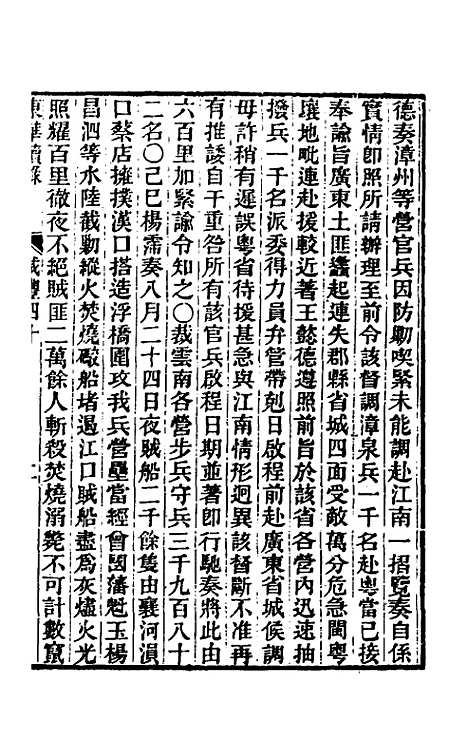 德奏漳州等營官兵因防剿喫緊未能調赴江南一摺覽奏自係
實情卽照所請辦理至前令該督調漳泉兵一千名赴粵當已接
奉諭旨廣東土匪蠭起連失郡縣省城四面受敵萬分危急閩粵
壤地毗連赴援較近著王懿德遵照前旨於該省各營內迅速抽
撥兵一千名派委得力員弁管帶剋日啟程前赴廣東省城候調
毋許稍有遲誤粵省待援甚急與江南情形迥異該督斷不准再
有推諉自干重咎所有該官兵啟程日期並著卽行馳奏將此由
六百里加緊諭令知之〇裁雲南各營步兵守兵三千九百八十
二名〇己巳楊霈奏八月二十四日夜賊船二千餘隻由襄河溳
口蔡店擁撲漢口搭造浮橋圍攻我兵營壘當經曾國藩魁玉楊
昌泗等水陸截剿縱火焚燒礮船堵遏江口賊船盡爲灰燼火光
照耀百里徹夜不絕賊匪二萬餘人斬殺焚燒溺斃不可計數竄
東華續錄
咸豐四十